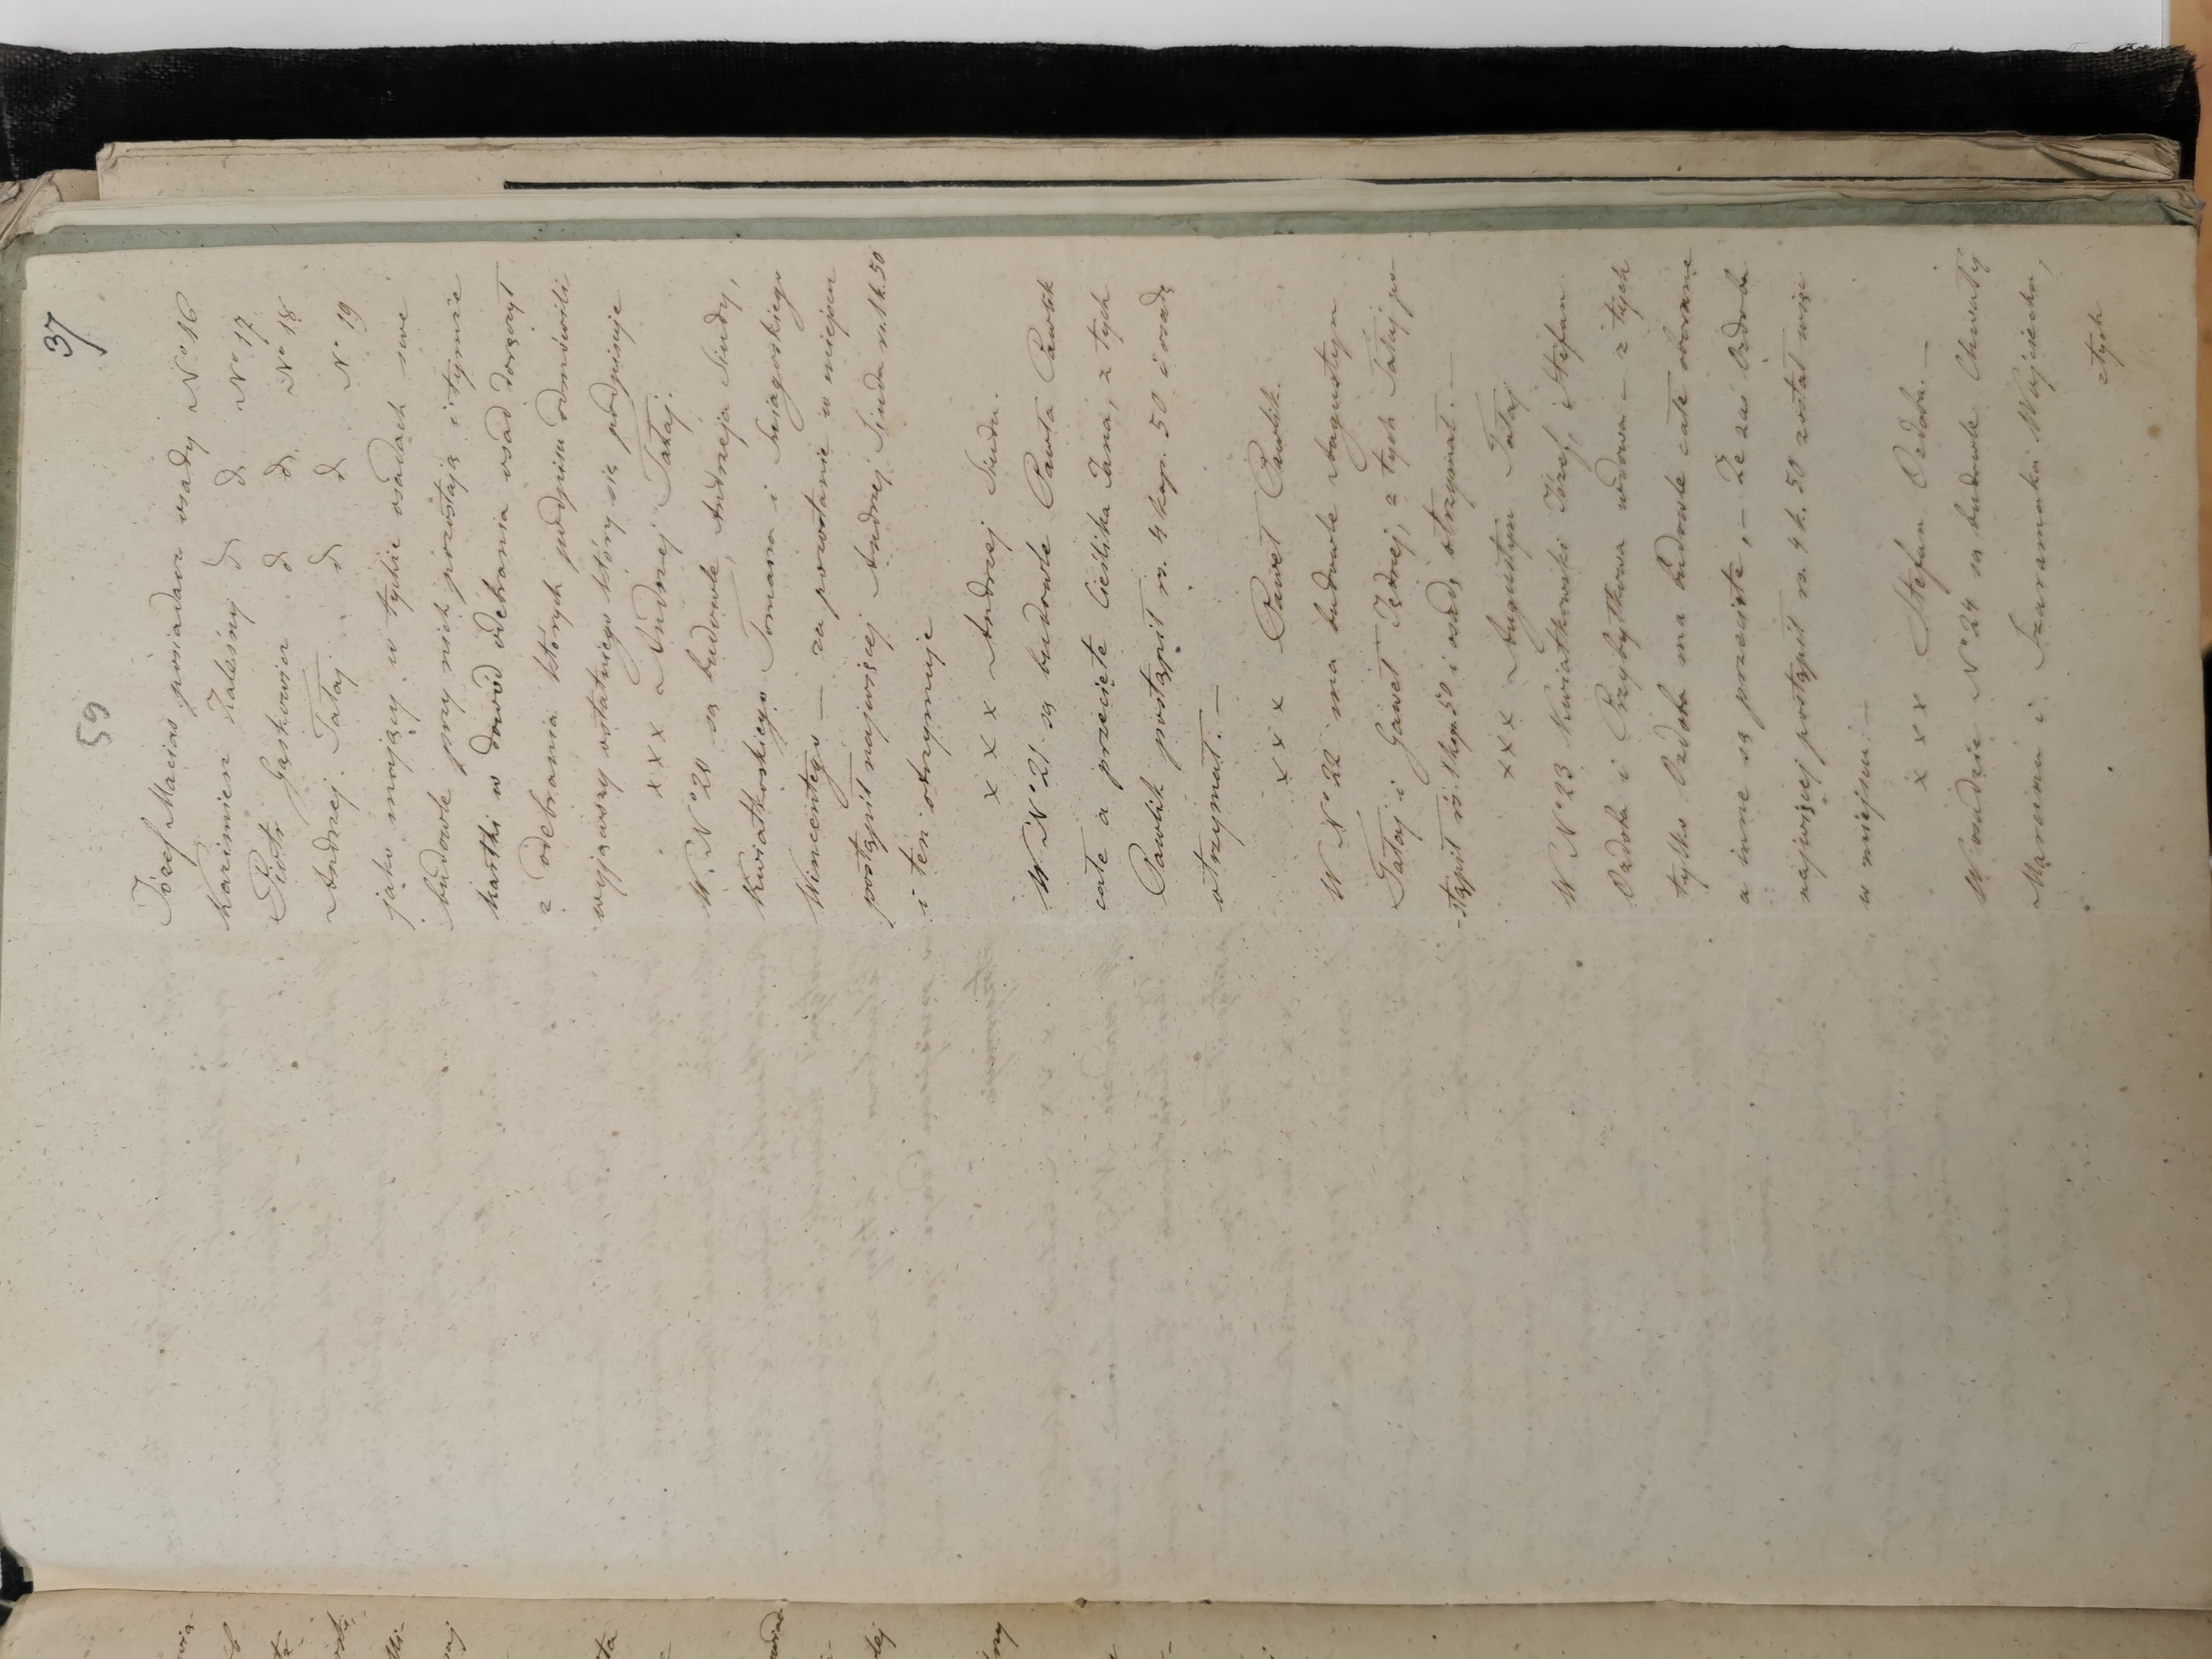 37
59
Józef Macias posiadacz osady No 16
Kazimierz Zaleśny d d No 17
Piotr Gąskowicz d d No 18
Andrzej Tataj d d No 19
jako mający w tychże osadach swe
budowle przy nich pozostają i tymże
kartki w dowód odebrania osad doręczył
z odebrania których podpisu odmówili
wyjąwszy ostatniego który się podpisuje
x x x Andrzej Tataj.
W No 20 są budowle Andrzeja Siudy,
Kwiatkoskiego Tomasza i
Wincentego — za pozostanie w miejscu
postąpił najwięcej Andrzej Siuda rs. 1 k. 50
i ten otrzymuje
x x x Andrzej Siuda.
W No 21 są budowle Pawła Pawlik
całe a przecięte Cieślika Jana, z tych
Pawlik postąpił rs. 4 kop. 50 i osadę
otrzymał. —
x x x Paweł Pawlik.
W No 22 ma budowle Augustyn
Tataj i Gaweł Jędrzej, z tych Tataj po
-stąpił rs. 1 kop. 50 i osadę otrzymał. —
x x x Augustyn Tataj
W No 23 Kwiatkowski Józef, Stefan
Ozdoba i Przybytkowa wdowa — z tych
tylko Ozdoba ma budowle całe
a inne są przecięte, — że zaś Ozdoba
najwięcej postąpił rs. 4 k. 50 został więc
w miejscu. —
x x x Stefan Ozdoba. —
W osadzie No 24 są budowle Chwały
Marcina i Szaramaka Wojciecha,
z tych